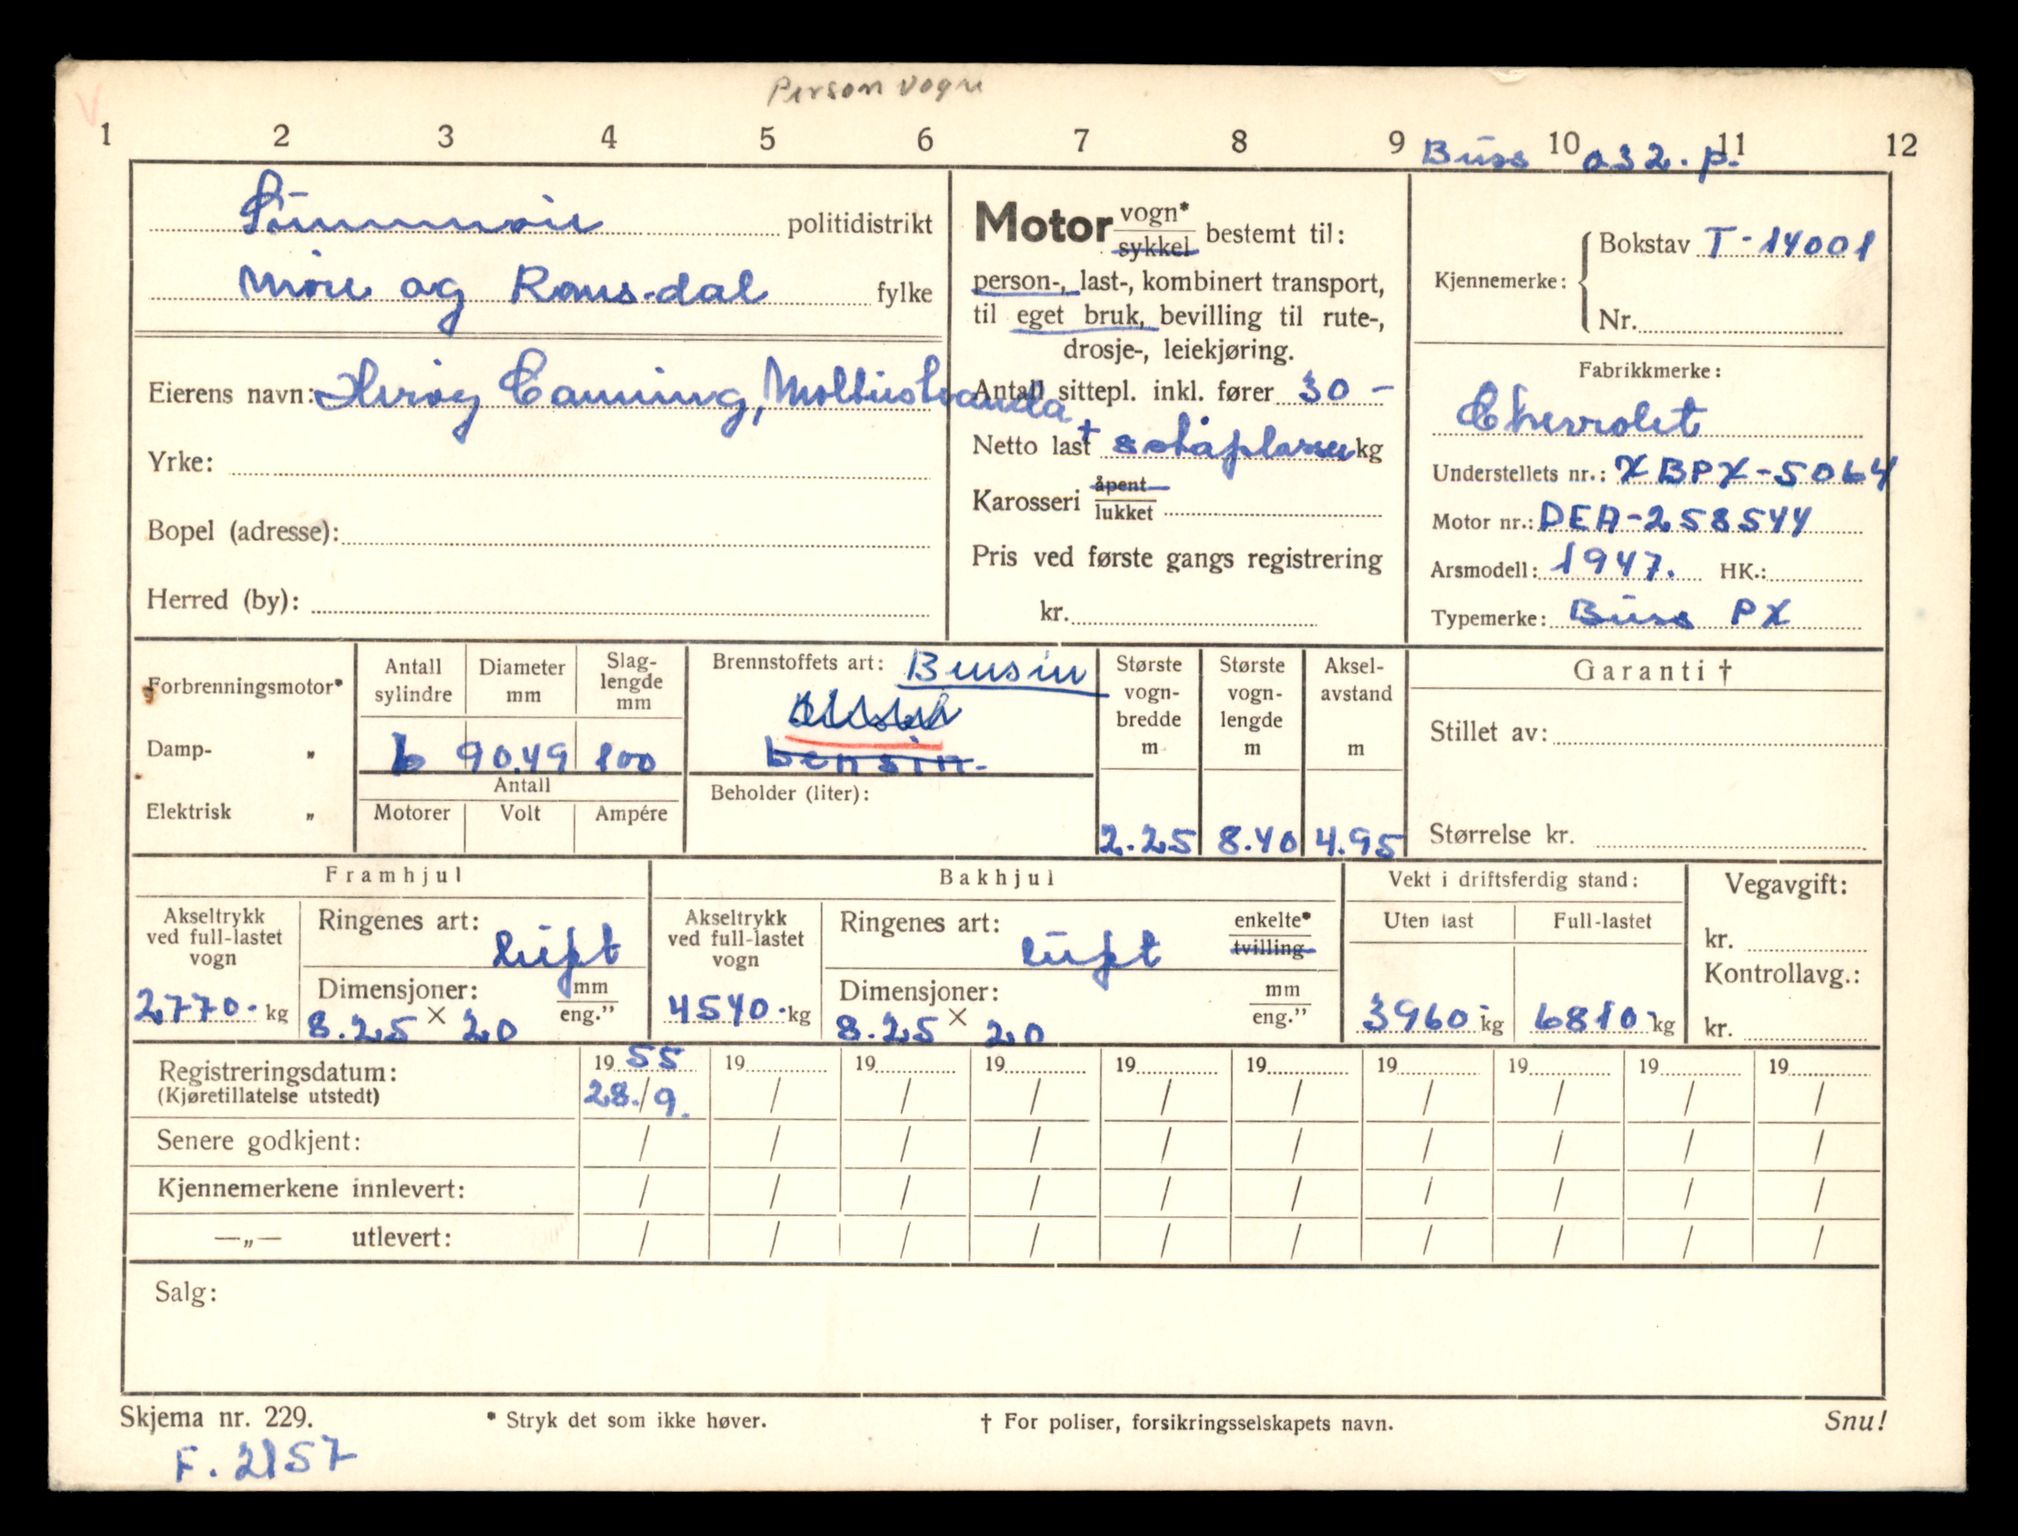 Person vogn
V
1 2 3 4 5 6 7 8 9 10 11 12
Buss 032. p.
Sunnmøre politidistrikt
Møre og Romsdal fylke
Eierens navn:
Yrke:
Bopel (adresse):
Herred (by):
Motor vogn* sykkel bestemt til:
person-, last-, kombinert transport,
til eget bruk, bevilling til rute-,
drosje-, leiekjøring.
Antall sittepl. inkl. fører 30 -
Netto last + ståplasser kg
Karosseri åpent lukket
Pris ved første gangs registrering
kr.
Kjennemerke: Bokstav T-14001
Nr.
Fabrikkmerke:
Chevrolet
Understellets nr.: XBPX-5064
Motor nr.: DEA-258544
Arsmodell: 1947. HK.:
Typemerke: Buss PX
Forbrenningsmotor*
Damp- „
Elektrisk „
Antall sylindre
Diameter mm
Slag-lengde mm
6 90.49 100
Antall
Motorer Volt Ampére
Brennstoffets art: Bensin
bensin.
Beholder (liter):
Største vogn-bredde m
Største vogn-lengde m
Aksel-avstand m
2.25 8.40 4.95
Garanti †
Stillet av:
Størrelse kr.
Framhjul
Akseltrykk ved full-lastet vogn
2770. kg
Ringenes art: luft
Dimensjoner: mm eng.”
8.25 × 20
Bakhjul
Akseltrykk ved full-lastet vogn
4540. kg
Ringenes art: luft enkelte* tvilling
Dimensjoner: mm eng.”
8.25 × 20
Vekt i driftsferdig stand:
Uten last Full-lastet
3960 kg 6810 kg
Vegavgift:
kr.
Kontrollavg.:
kr.
Registreringsdatum: 19 55 19 19 19 19 19 19 19 19 19
(Kjøretillatelse utstedt) 28. / 9. / / / / / / / / /
Senere godkjent: / / / / / / / / / /
Kjennemerkene innlevert: / / / / / / / / / /
—„— utlevert: / / / / / / / / / /
Salg:
Skjema nr. 229. * Stryk det som ikke høver. † For poliser, forsikringsselskapets navn. Snu!
F. 2157